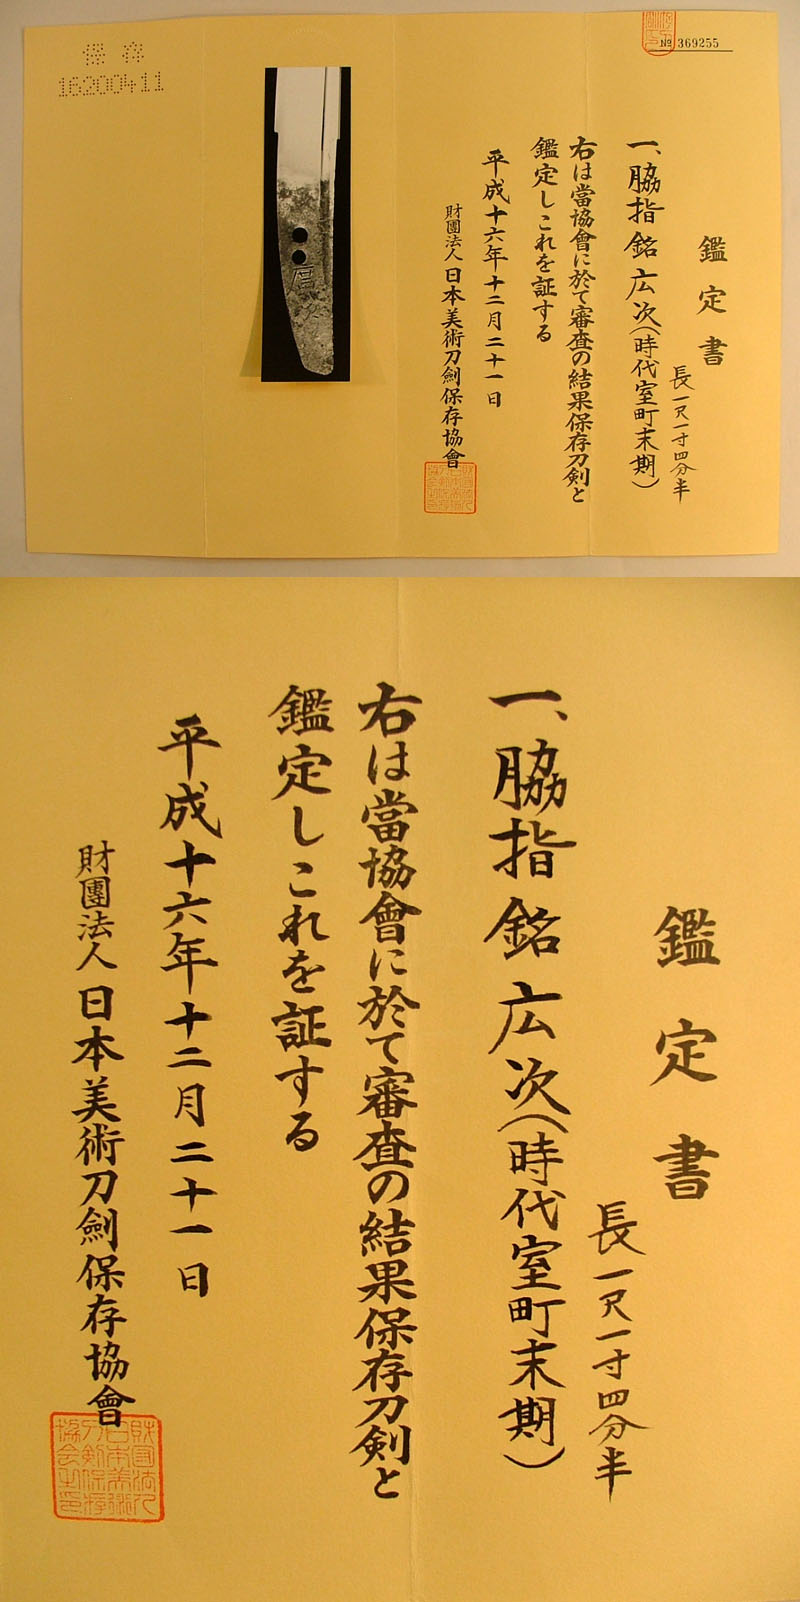 保存
16200411
№ 369255
鑑定書
長一尺一寸四分半
一、脇指 銘 広次（時代室町末期）
右は當協會に於て審査の結果保存刀剣と
鑑定しこれを証する
平成十六年十二月二十一日
財團法人 日本美術刀劍保存協會
鑑定書
長一尺一寸四分半
一、脇指 銘 広次（時代室町末期）
右は當協會に於て審査の結果保存刀剣と
鑑定しこれを証する
平成十六年十二月二十一日
財團法人 日本美術刀劍保存協會